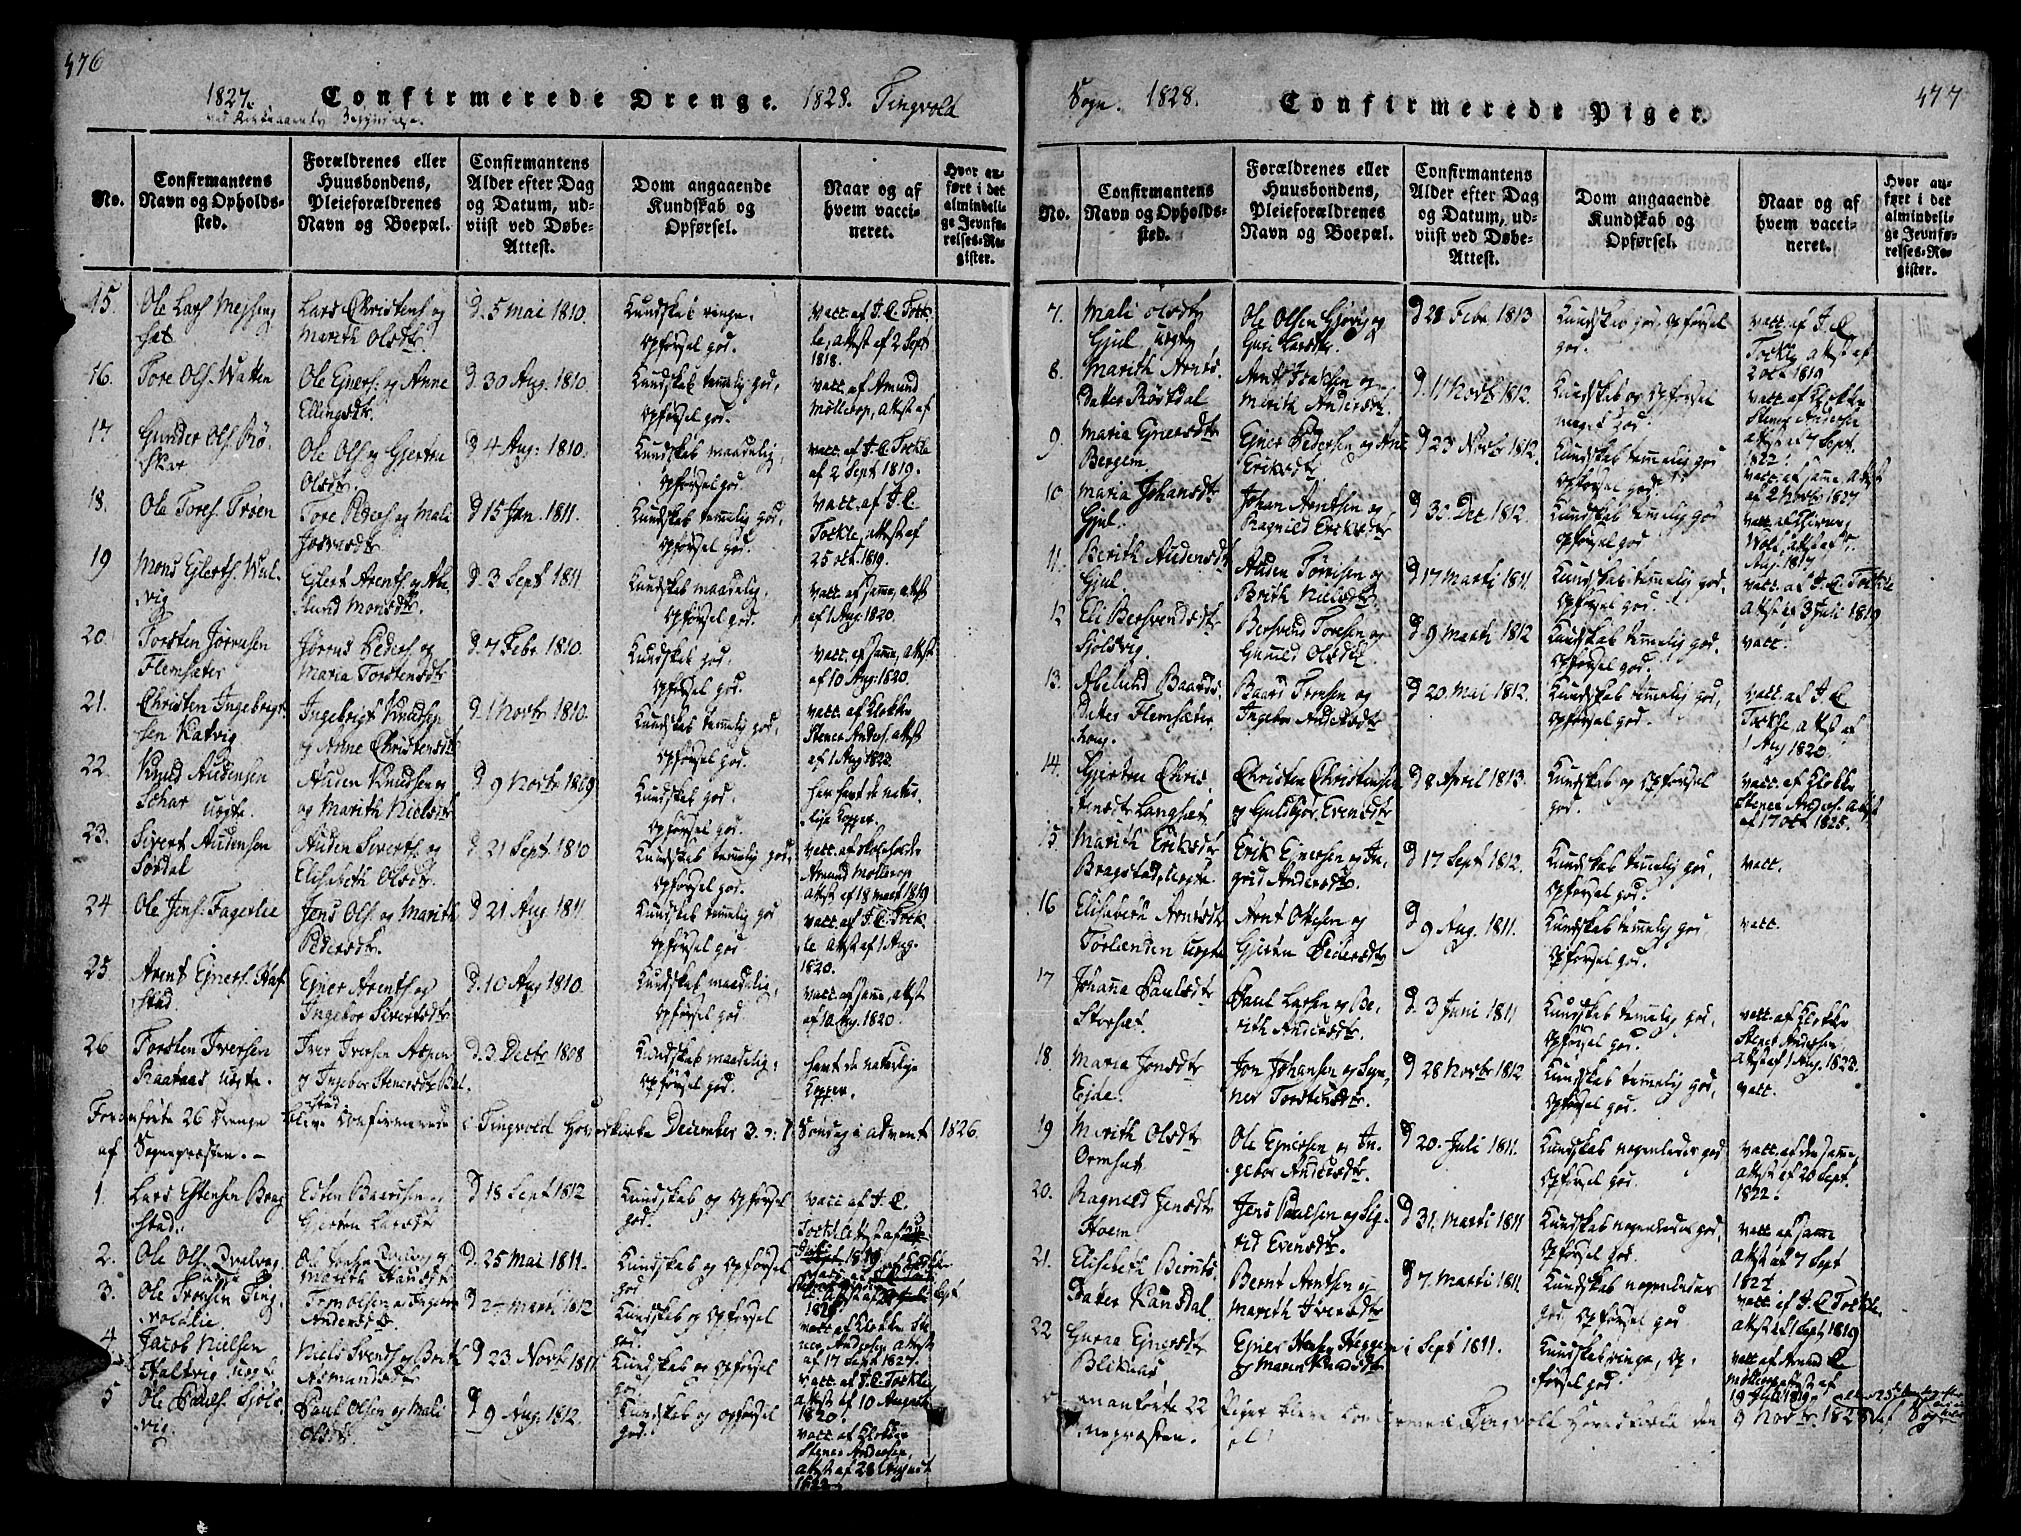 476
1827. Confirmerede Drenge. 1828. Tingvold
ved Kirkeaarets Begyndelse.
No.
Confirmantens
Navn og Opholds-
sted.
Forældrenes eller
Huusbondens,
Pleieforældrenes
Navn og Boepæl.
Confirmantens
Alder efter Dag
og Datum, ud-
viist ved Døbe-
Attest.
Dom angaaende
Kundskab og
Opførsel.
Naar og af
hvem vacci-
neret.
Hvor an-
ført i det
almindeli-
ge Jevnfø-
relses-Re-
gister.
15. Ole Lars. Meising
sæt
Lars Christens. og
Marith Olsdtr.
d. 5 Mai 1810.
Kundskab ringe,
Opførsel god.
vacc. af J. C. Tock-
le, attest af 2 Sept
1818.
16. Tore Ols. Watten
Ole Ejners. og Anne
Ellingsdtr.
d. 30 Aug. 1810.
Kundskab temmelig god,
Opførsel god.
vacc. af Amund
Møllerop, attest af
17 Gunder Ols. Rø-
skar
Ole Ols. og Gjertru
Olsdtr.
d 4 Aug: 1810.
Kundskab maadelig,
Opførsel god.
vacc. af J. C. Tockle
af 2 Sept 1819.
18. Ole Tores. Trøen
Tore Peders. og Mali
d 15 Jan. 1811.
Kundskab temmelig god,
Opførsel god.
vacc. af J. C.
Tockle, attest af
25 Oct. 1819.
19 Mons Ejlerts. Wul-
vig
Ejlert Arents. og Abe-
lund Monsdtr.
d. 3 Sept 1811
Kundskab maadelig,
Opførsel god.
vacc. af samme, attest
af 1 Aug. 1820.
20. Torsten Jørnsen
Flemsæter
Jørn Peders. og
Maria Torstensdtr
d. 7 Febr 1810.
Kundskab god,
Opførsel god.
vacc. af samme, attest
af 10 Aug: 1820.
21. Christen Ingebrigt-
sen Ratvig
Ingebrigt Knudsen
og Anne Christensdtr
d. 1 Novbr 1810.
Kundskab temmelig god,
Opførsel god.
vacc. af Klokker
Stener Anders. attest
af 1 Aug 1822.
22. Knud Audensen
uægte.
Auden Knudsen
og Marith Nielsdtr
d 9 Novbr 1809
Kundskab god,
Opførsel god.
har havt de natur-
lige Kopper.
23. Sivert Audensen
Sørdal
Auden Siverts. og
Elisabeth Olsdtr.
d 21 Sept. 1810
Kundskab temmelig god,
Opførsel god.
vacc. af Skoleholder
Amund Møllerop
attest af 18 Marti 1819
24 Ole Jens. Fagerlie
Jens Ols. og Marith
Pedersdtr.
d 21 Aug 1811
Kundskab temmelig god
Opførsel god
vacc. af J. C. Tock
le attest af 1 Aug.
1820.
25 Arent Ejners. Haf-
stad
Ejner Arents. og
Ingebor Sivertsdtr
d. 10 Aug 1810
Kundskab maadelig,
Opførsel god.
vacc. af samme, attest
af 10 Aug. 1820.
26 Torsten Iversen
Raanaas uægte.
Iver Iversen Aspen
og Ingebor Stenersdtr Bol-
stad
d. 3 Decbr 1808
Kundskab maadelig,
Opførsel god.
havt de naturlige
Kopper.
Foranførte 26 Drenge bleve confirmerede i Tingvold Hovedkirke December 3. Søndag i Advent 1826.
af Sognepræsten. –
1. Lars Estensen Brag
stad.
Esten Baardsen og
Gjertru Larsdtr
d 18 Sept 1812
Kundskab og Opførsel
god.
vacc. af J. C.
Tockle
2. Ole Ols. Qvalvag
d 25 Mai 1811.
Kundskab og Opførsel
god
3. Ole Tronsen Ting-
voldlie
Tron Olsen og Ingebor
Andersdtr
d 27 Marti 1812
Kundskab og Opførsel
god
4 Jacob Nielsen
Haltvig uægte
Niels Svends. og Berit
Asmundsdtr
d 23 Novbr 1811
Kundskab og Opførsel
god
vacc. af Klokker Ste
ner Andersen attest
af 17 Sept 1827.
5 Ole Pauls. Sjøls-
vig.
Paul Olsen og Mali
Olsdtr.
d 9 Aug. 1812.
Kundskab og Opførsel
god.
vacc. af J. C. Tockle
attest af 10 August
1820.
vacc. af Klokker
Stener Andersen,
attest af 28 August
477
Sogn. 1828. Confirmerede Piger.
No.
Confirmantens
Navn og Opholds-
sted.
Forældrenes eller
Huusbondens,
Pleieforældrenes
Navn og Boepæl.
Confirmantens
Alder efter Dag
og Datum, ud-
viist ved Døbe-
Attest.
Dom angaaende
Kundskab og
Opførsel.
Naar og af
hvem vacci-
neret.
Hvor an-
ført i det
almindeli-
ge Jevnfø-
relses-Re-
gister.
7. Mali Olsdtr
Gjul uægte
Ole Olsen Gjøvig og
Guri Larsdtr.
d 28 Febr. 1813
Kundskab god, Opførsel
god.
vacc. af J. C.
Tockle attest af
2 Oct 1819
8. Marith Arnts-
dater Røstdal
Arnt Isaksen og
Marith Andersdtr.
d. 11 Novbr 1812.
Kundskab og Opførsel
meget god.
vacc. af Klokker
Stener Andersen
attest af 7 Sept.
1822.
9. Maria Ejnersdtr
Bergem
Ejner Pedersen og Ane
Eriksdtr
d 23 Novbr 1812.
Kundskab temmelig god
Opførsel god.
vacc. af samme attest
af 2 Novbr 1827
10 Maria Johansdtr
Gjul.
Johan Arntsen og
Ragnild Eriksdtr
d 30 Dec. 1812.
Kundskab temmelig god
Opførsel god
Aug. 1817
11. Berith Audensdtr
Gjul
Auden Torrisen og
Brith Nielsdtr.
d 17 Marti 1811
Kundskab temmelig god,
Opførsel god.
vacc. af J. C. Tockle
attest af 3 Juli 1819
12 Eli Bersvendsdtr
Sjølsvig.
Bersvend Toresen og
Gunild Olsdtr.
d. 9 Marti 1812
Kundskab temmelig god.
Opførsel god.
vacc.
13. Abelund Baards-
dater Flemsæter
haug.
Baard Tronsen og
Ingebor Andersdtr
d 20. Mai 1812.
Kundskab temmelig god,
Opførsel god.
vacc. af J. C.
Tockle attest af
1 Aug 1820.
14. Gjertru Chris-
tensdtr Langsæt.
Christen Christensen
og Guldbjør Evensdtr
d 8 April 1813.
Kundskab og Opførsel
god.
vacc. af Klokker
Stener Anders. attest
af 17 Oct 1825.
15 Marith Eriksdtr
Bragstad, uægte.
Erik Ejnersen og In-
grid Andersdtr.
d 17 Sept 1812.
Kundskab temmelig god,
Opførsel god.
vacc.
16 Elisabeth Arntsdtr
Torlienden uægte
Arnt Ottesen og
Gjertru Pedersdtr
d 9 Aug. 1811.
Kundskab temmelig god,
Opførsel god.
vacc.
17 Johanna Paulsdtr
Storsæt.
Paul Larsen og Be-
rith Andersdtr.
d. 3 Juni 1811
Kundskab temmelig god,
Opførsel god.
vacc. af Klokker
Stener Andersen,
attest af 1 Aug. 1822.
18. Maria Jonsdtr
Ejde.
Jon Johansen og Sgn-
ner Torstensdtr.
d 28 Novbr 1812
Kundskab temmelig god,
Opførsel god.
vacc.
19 Marith Olsdtr
Ormsæt.
Ole Ejnersen og In-
gebor Andersdtr.
d 20. Juli 1811.
Kundskab nogenledes god
Opførsel god.
vacc. af den samme,
attest af 26 Sept.
1822.
20. Ragnild Jensdtr
Hoem
Jens Paulsen og Sig-
rid Evensdtr.
d 31. Marti 1811
Kundskab nogenledes god,
Opførsel god.
vacc. af samme
attest af 7 Sept
1827.
21. Elisabeth Bernts-
dater Kansdal
Bernt Arntsen og
Marith Iversdtr
d 7 Marti 1811
Kundskab nogenledes
god, Opførsel god
vacc. af J. C. Tockle.
attest af 1 Sept 1819
22 Guraa Ejnersdtr
Bleknas
Ejner Hans. Heggem
og Maren Knudsdtr
i Sept 1811.
Kundskab ringe, Op-
førsel god.
vacc. af Amund
Møllerop attest af
19 Juli 1819.
Foranførte 22 Piger bleve confirmerede i Tingvold Hovedkirke den 9 Novbr. 1828
Sognepræsten.